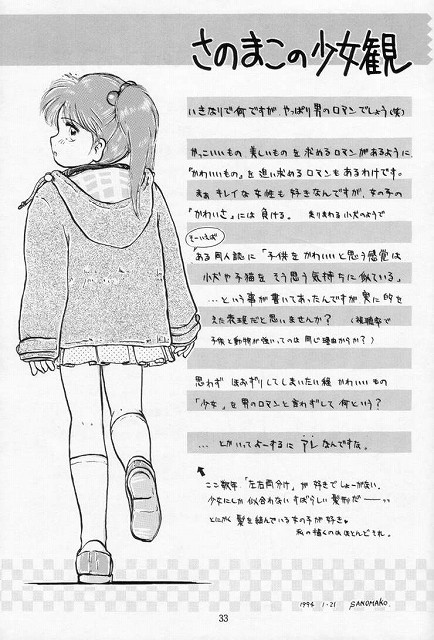 さのまこの少女観
いきなりで何ですが やっぱり男のロマンでしょう(笑)
かっこいいもの 美しいものを求めるロマンがあるように、
「かわいいもの」を追い求めるロマンもあるわけです。
まぁ キレイな女性も好きなんですが、女の子の
「かわいさ」には負ける。 走りまわる小犬のようで
そーいえば
ある同人誌に「子供をかわいいと思う感覚は
小犬や子猫をそう思う気持ちに似ている」
…という事が書いてあったんですが 実に的を
えた表現だと思いませんか? (視聴率で
子供と動物が強いってのは同じ理由からか?)
思わず ほおずりしてしまいたい程 かわいいもの
「少女」を男のロマンと言わずして何という?
…とかいってよーするに アレ なんですな。
ここ数年、「左右両分け」が好きでしょーがない。
少女にしか似合わないすばらしい髪形だ―――ッッ
とにかく 髪を結んでいる女の子が好き。
私の描くのはほとんどそれ。
1994 1・21 SANOMAKO.
33